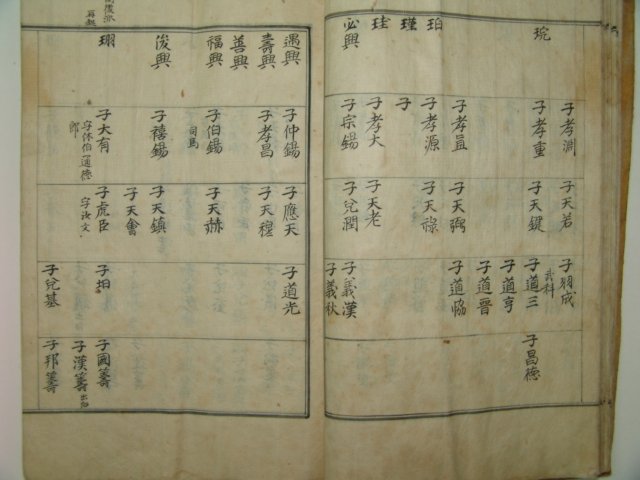 琬
珀
瑾
珪
必興
子孝淵
子孝重
子孝益
子孝源
子
子孝大
子宗錫
子天若
子天鍵
子天弼
子天祿
子天老
子兌潤
子羽成
子道三
武科
子道亨
子道晋
子道恊
子義漢
子義秋
子昌德
遇興
壽興
善興
福興
俊興
珝
子仲錫
子孝昌
子伯錫
司馬
子禧錫
子大有
字休伯 通德郎
子應天
子天穆
子天赫
子天鎮
子天會
子虎臣
字汝文
子道光
子珀
子兌基
子國籌
子漢籌
子邦籌